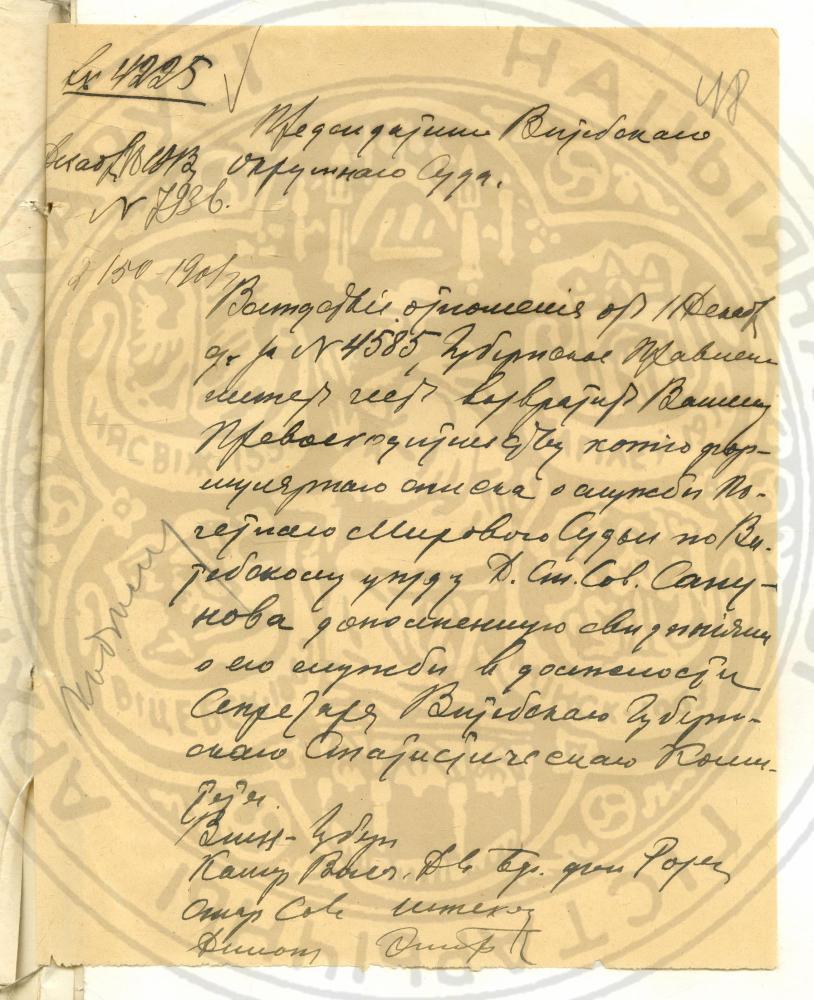 Вх 4225
48
Председателю Витебскаго
Окружнаго Суда.
N 7936.
Вследствіе отношенія отъ 11 Декабр
с.г. за N 4585, Губернское Правлен
имеетъ честь возвратить Вашему
Превосходительству копію фор-
мулярнаго списка о службѣ По-
четнаго Мирового Судьи по Ви-
тебскому уѣзду Д. Ст. Сов. Сапу-
нова дополненную свѣдѣніями
о его службѣ въ должности
Секретаря Витебскаго Губерн-
скаго Статистическаго Коми-
тета.
Вице-Губер
Камер Выс. Дв. бар. фон Розен
Стар Сов